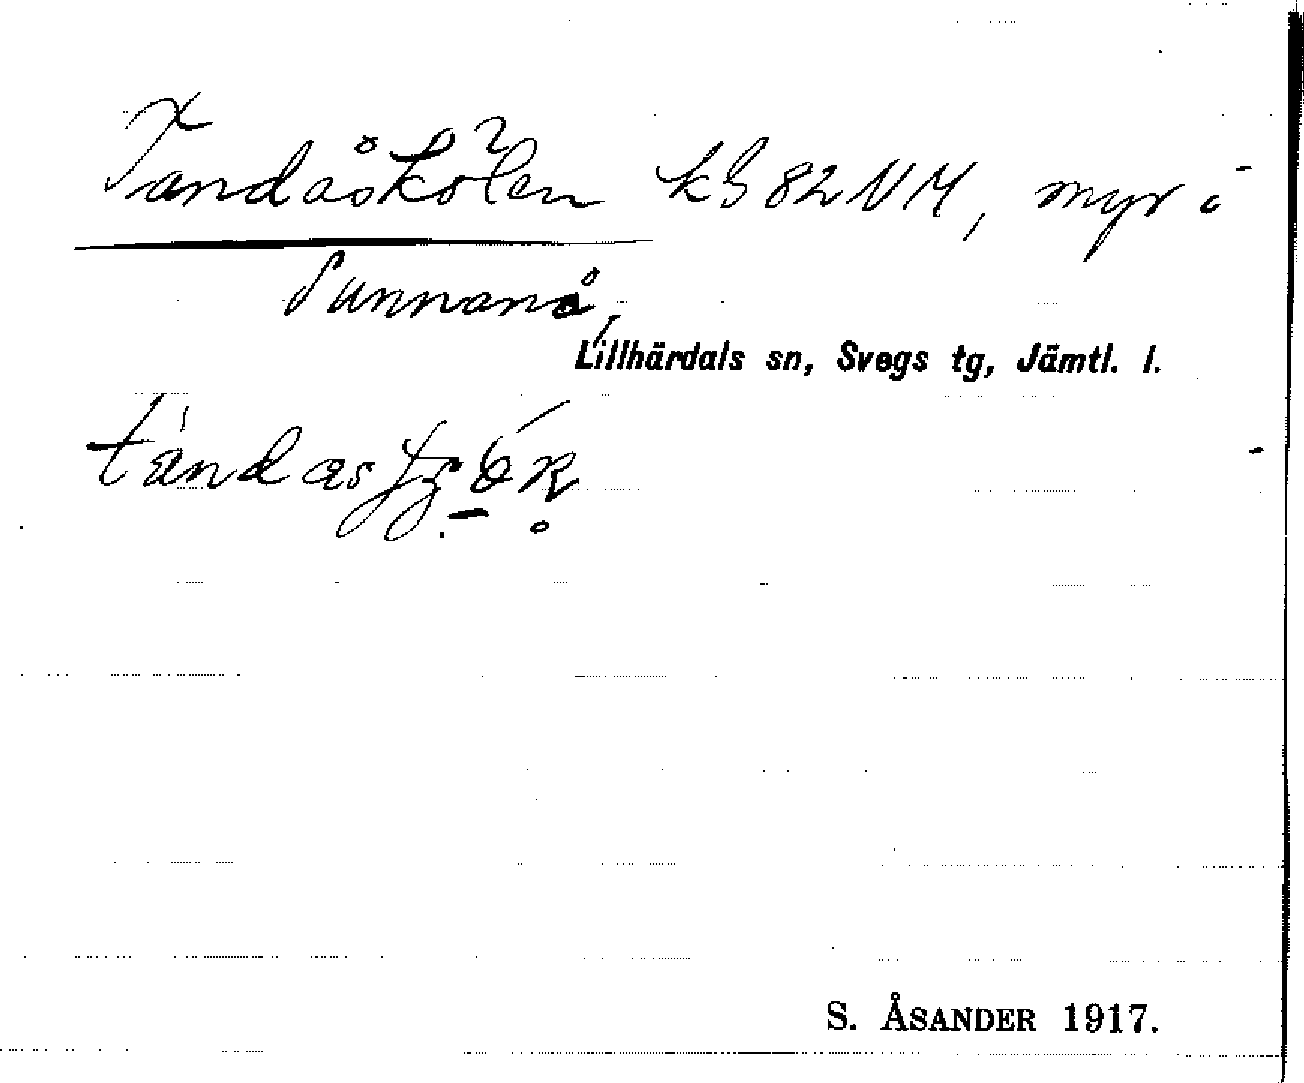 Tandåskölen kB 82 NM, myr i
Sunnanå,
Lillhärdals sn, Svegs tg, Jämtl. l.
S. ÅSANDER 1917.